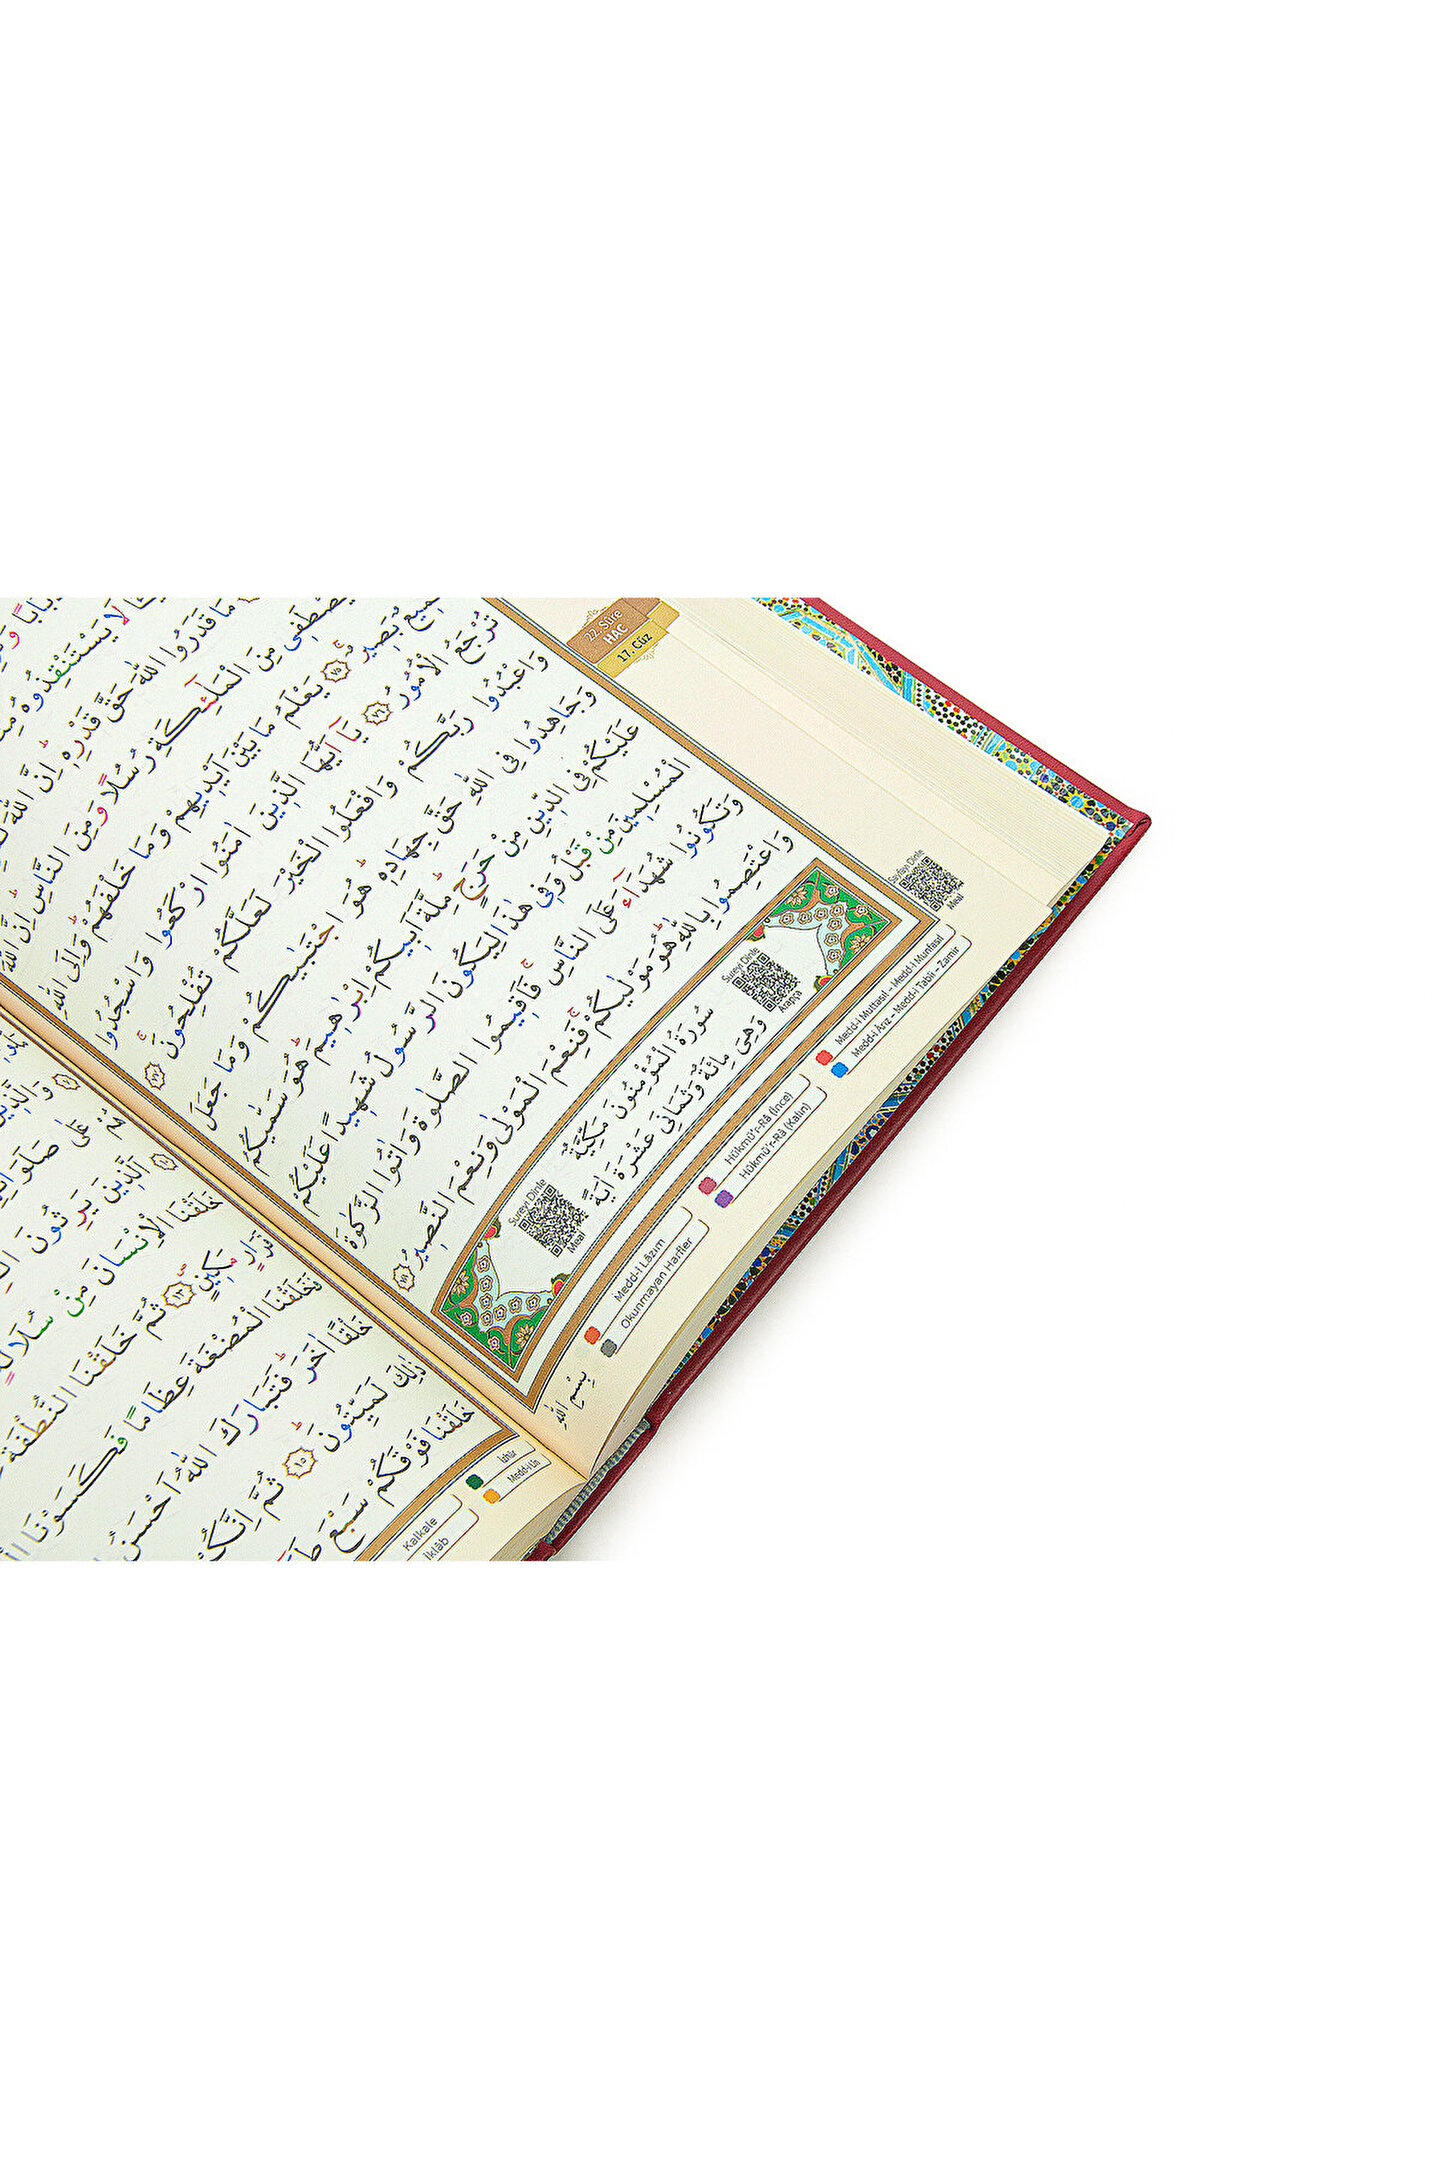 22. Sûre
HAC
17. Cüz
مَا قَدَرُوا اللّٰهَ حَقَّ قَدْرِهٖ اِنَّ اللّٰهَ
مِنَ الْمَلٰٓئِكَةِ رُسُلًا وَمِنَ النَّاسِ اِنَّ اللّٰهَ
بَصٖيرٌ ﴿٧٥﴾ يَعْلَمُ مَا بَيْنَ اَيْدٖيهِمْ وَمَا خَلْفَهُمْ وَاِلَى اللّٰهِ
تُرْجَعُ الْاُمُورُ ﴿٧٦﴾ يَٓا اَيُّهَا الَّذٖينَ اٰمَنُوا ارْكَعُوا وَاسْجُدُوا
وَاعْبُدُوا رَبَّكُمْ وَافْعَلُوا الْخَيْرَ لَعَلَّكُمْ تُفْلِحُونَ ﴿٧٧﴾
وَجَاهِدُوا فِى اللّٰهِ حَقَّ جِهَادِهٖ هُوَ اجْتَبٰيكُمْ وَمَا جَعَلَ
عَلَيْكُمْ فِى الدّٖينِ مِنْ حَرَجٍ مِلَّةَ اَبٖيكُمْ اِبْرٰهٖيمَ هُوَ سَمّٰيكُمُ
الْمُسْلِمٖينَ مِنْ قَبْلُ وَفٖى هٰذَا لِيَكُونَ الرَّسُولُ شَهٖيدًا عَلَيْكُمْ
وَتَكُونُوا شُهَدَٓاءَ عَلَى النَّاسِ فَاَقٖيمُوا الصَّلٰوةَ وَاٰتُوا الزَّكٰوةَ
وَاعْتَصِمُوا بِاللّٰهِ هُوَ مَوْلٰيكُمْ فَنِعْمَ الْمَوْلٰى وَنِعْمَ النَّصٖيرُ ﴿٧٨﴾
سُورَةُ الْمُؤْمِنُونَ مَكِّيَّةٌ
وَهِىَ مِائَةٌ وَثَمَانٖى عَشْرَةَ اٰيَةً
Sureyi Dinle
Arapça
Sureyi Dinle
Meal
Sureyi Dinle
Meal
Medd-i Muttasıl – Medd-i Munfasıl
Medd-i Ârız – Medd-i Tabîi – Zamir
Hükmü'r-Râ (İnce)
Hükmü'r-Râ (Kalın)
Medd-i Lâzım
Okunmayan Harfler
بِسْمِ اللّٰهِ
خَلَقْنَا الْاِنْسَانَ مِنْ سُلَالَةٍ
مَكٖينٍ ﴿١٣﴾ ثُمَّ خَلَقْنَا النُّطْفَةَ
فَخَلَقْنَا الْمُضْغَةَ عِظَامًا فَكَسَوْنَا
خَلْقًا اٰخَرَ فَتَبَارَكَ اللّٰهُ اَحْسَنُ
ذٰلِكَ لَمَيِّتُونَ ﴿١٥﴾ ثُمَّ اِنَّكُمْ
خَلَقْنَا فَوْقَكُمْ سَبْعَ
İzhâr
Medd-i Lîn
Kalkale
İklâb